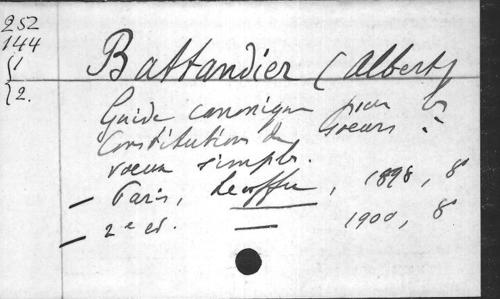 252
144
{1
{2.
Battandier (Albert)
Guide canonique pour les
Constitutions de Soeurs à
voeux simples.
— Paris, Lecoffre, 1898, 8°
— 2e ed. — 1900, 8°